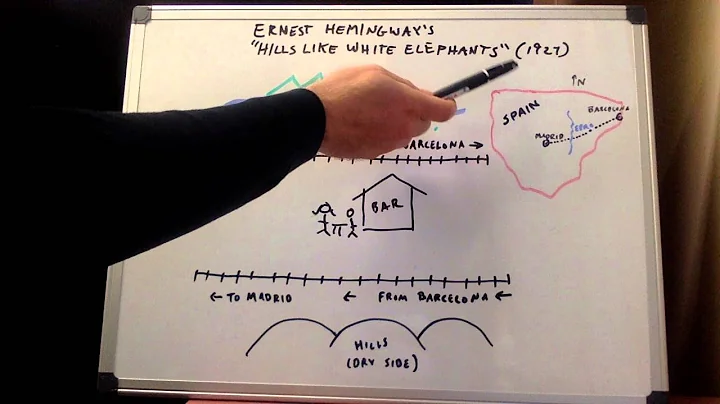 ERNEST HEMINGWAY'S
"HILLS LIKE WHITE ELEPHANTS" (1927)
↑N
SPAIN
BARCELONA
EBRO
MADRID
BARCELONA →
BAR
← TO MADRID ← FROM BARCELONA ←
HILLS
(DRY SIDE)